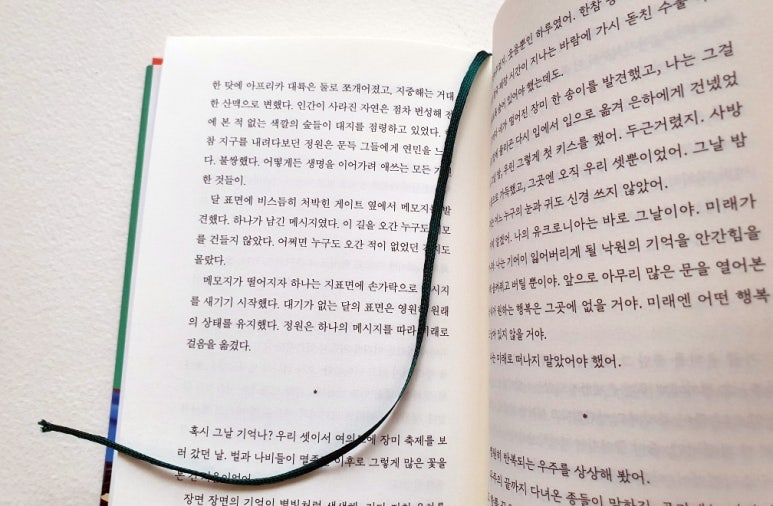 한 탓에 아프리카 대륙은 둘로 쪼개어졌고, 지중해는 거대
한 산맥으로 변했다. 인간이 사라진 자연은 점차 번성해 전
에 본 적 없는 색깔의 숲들이 대지를 점령하고 있었다.
참 지구를 내려다보던 정원은 문득 그들에게 연민을
다. 불쌍했다. 어떻게든 생명을 이어가려 애쓰는 모든
한 것들이.
달 표면에 비스듬히 처박힌 게이트 옆에서 메모지를 발
견했다. 하나가 남긴 메시지였다. 이 길을 오간 누구도
를 건들지 않았다. 어쩌면 누구도 오간 적이 없었던
몰랐다.
메모지가 떨어지자 하나는 지표면에 손가락으로
를 새기기 시작했다. 대기가 없는 달의 표면은 영원히 원래
의 상태를 유지했다. 정원은 하나의 메시지를 따라 미래로
걸음을 옮겼다.
혹시 그날 기억나? 우리 셋이서 장미 축제를 보
러 갔던 날. 벌과 나비들이 이후로 그렇게 많은 꽃을
장면 장면의 기억이
하루였어. 한참
시간이 지나는 바람에 가시 돋친 수술
있어야 했는데도.
떨어진 장미 한 송이를 발견했고, 나는 그걸
다시 입에서 입으로 옮겨 은하에게 건넸었
우린 그렇게 첫 키스를 했어. 두근거렸지. 사방
가득했고, 그곳엔 오직 우리 셋뿐이었어. 그날 밤
누구의 눈과 귀도 신경 쓰지 않았어.
나의 유크로니아는 바로 그날이야. 미래가
나는 기어이 잃어버리게 될 낙원의 기억을 안간힘을
버틸 뿐이야. 앞으로 아무리 많은 문을 열어본
원하는 행복은 그곳에 없을 거야. 미래엔 어떤 행복
있지 않을 거야.
미래로 떠나지 말았어야 했어.
반복되는 우주를 상상해 봤어.
끝까지 다녀온 종들이